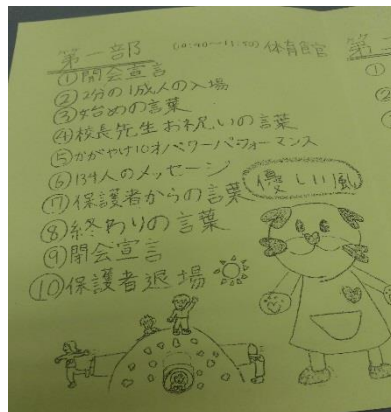 第一部 (10:40〜11:50) 体育館
①開会宣言
②2分の1成人の入場
③始めの言葉
④校長先生お祝いの言葉
⑤かがやけ10才パワーパフォーマンス
⑥134人のメッセージ
⑦保護者からの言葉
⑧終わりの言葉
⑨閉会宣言
⑩保護者退場
優しい風
第一
①
②